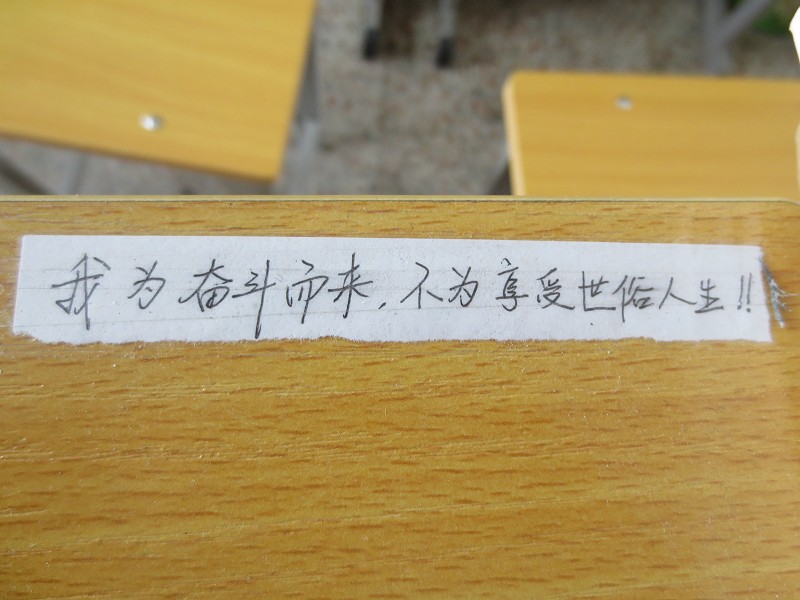 我为奋斗而来,不为享受世俗人生!!